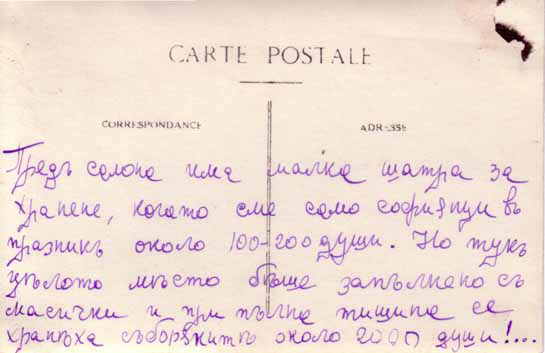 CARTE POSTALE
CORRESPONDANCE
ADRESSE
Предъ салона има малка шатра за
хранене, когато сме само софиянци въ
празникъ около 100-200 души. Но тукъ
цѣлото мѣсто бѣше запълнено съ
масички и при пълна тишина се
хранѣха съборянитѣ около 2000 души!...